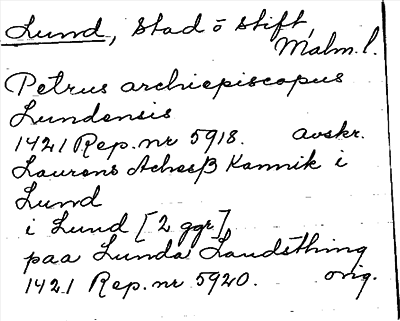 Lund, Stad o Stift,
Malm. l.
Petrus archiepiscopus
Lundensis
1421 Rep. nr 5918. avskr.
Laurens Achesß Kannik i
Lund
i Lund [2 ggr]
paa Lunda Landsthing
1421 Rep. nr 5920. orig.